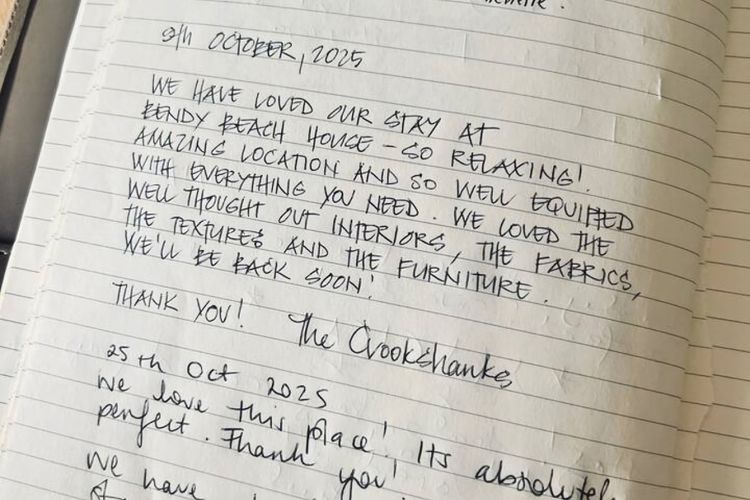 9th OCTOBER, 2025
WE HAVE LOVED OUR STAY AT
BENDY BEACH HOUSE - SO RELAXING!
AMAZING LOCATION AND SO WELL EQUIPPED
WITH EVERYTHING YOU NEED. WE LOVED THE
WELL THOUGHT OUT INTERIORS, THE FABRICS,
THE TEXTURES AND THE FURNITURE.
WE'LL BE BACK SOON!
THANK YOU! The Crookshanks
25th Oct 2025
We love this place! Its absolutely
perfect. Thank you!
We have